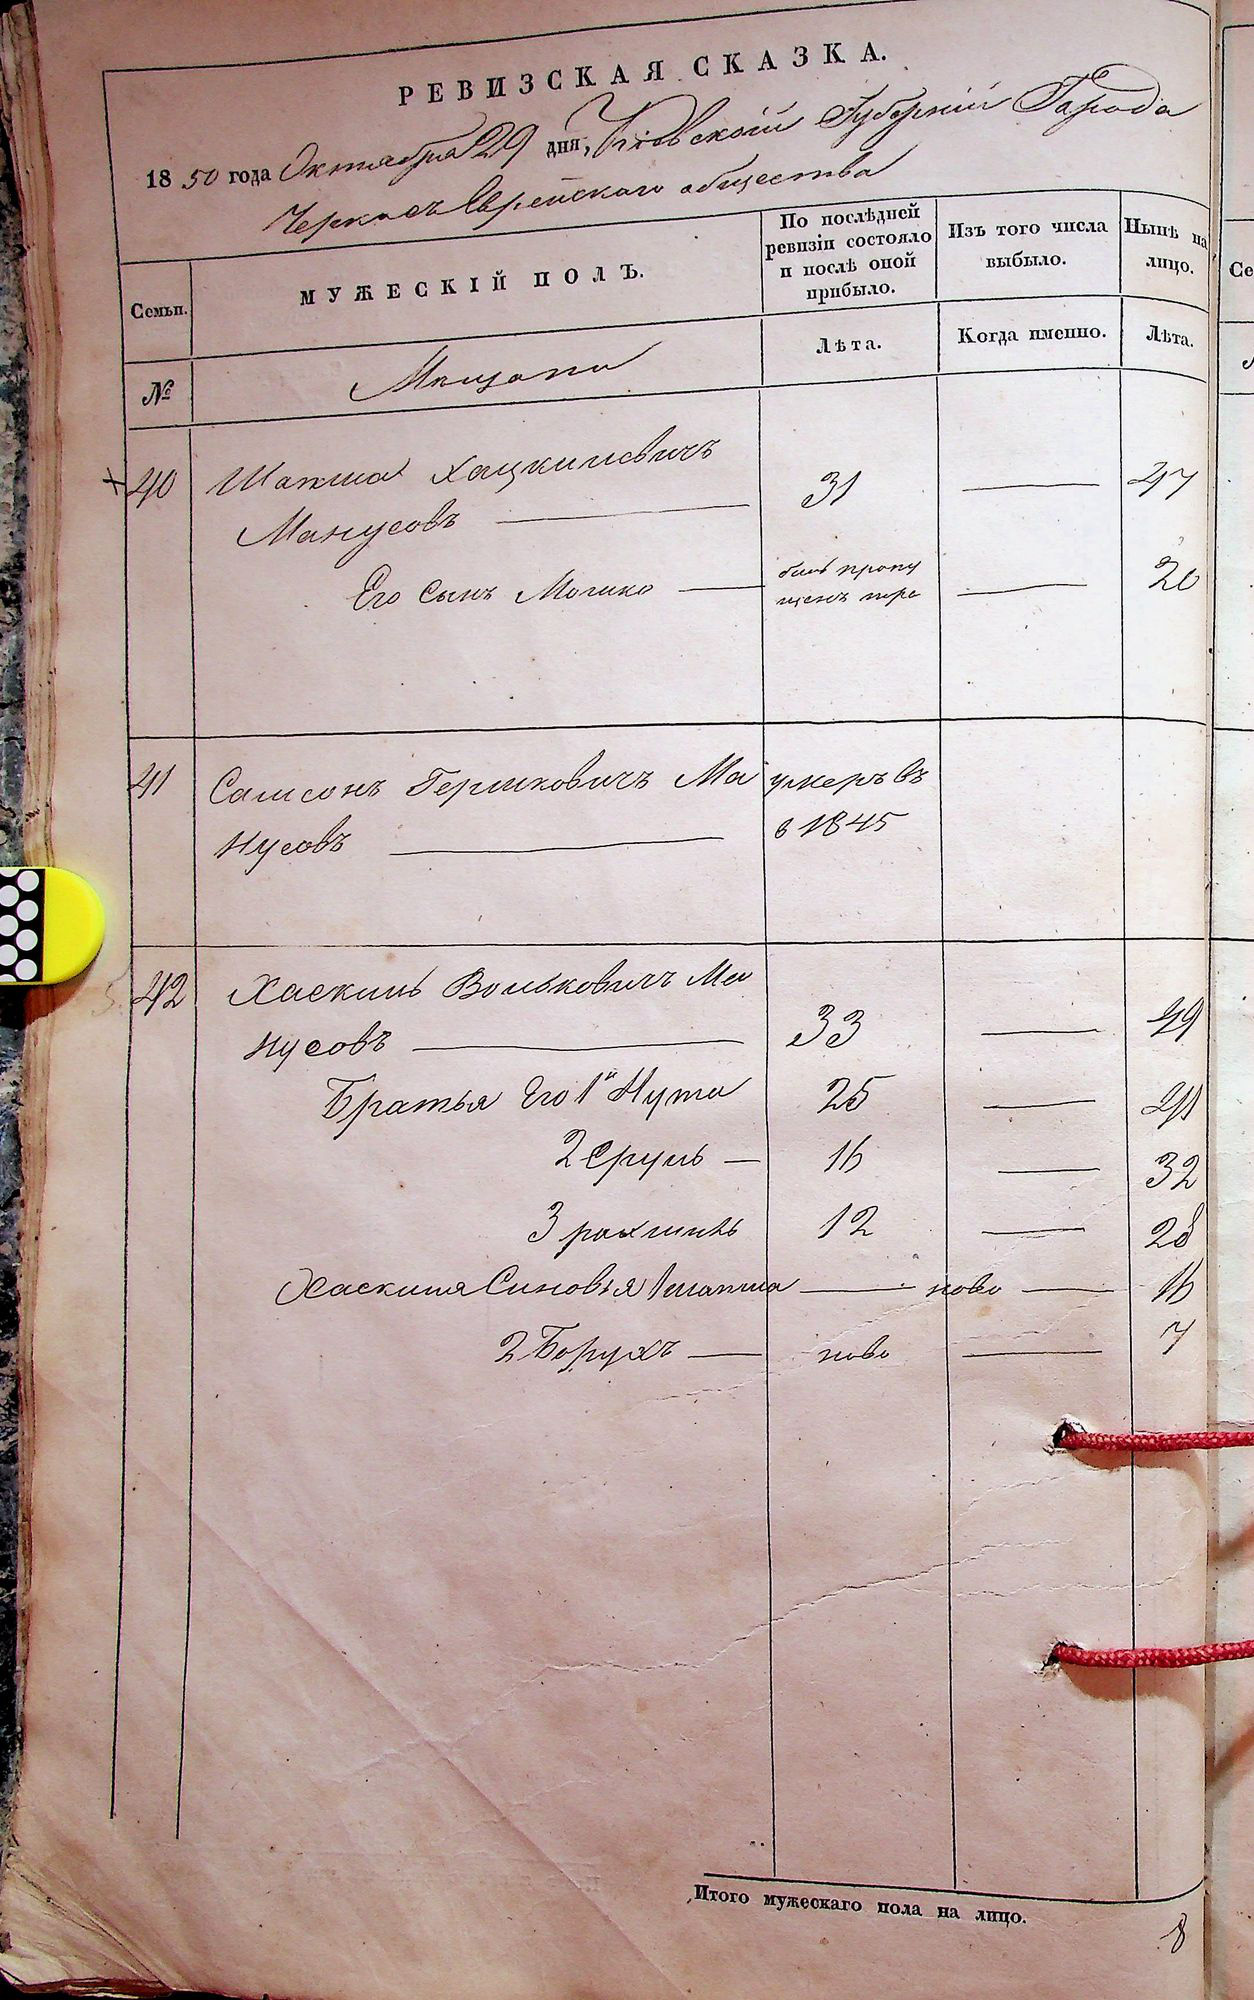 РЕВИЗСКАЯ СКАЗКА.
1850 года Октября 29 дня, Кіевской Губерніи Города
Черкасъ Еврейскаго общества
Семьи.
МУЖЕСКІЙ ПОЛЪ.
По послѣдней
ревизіи состояло
и послѣ оной
прибыло.
Изъ того числа
выбыло.
Нынѣ на
лицо.
№
Мещани
Лѣта.
Когда именно.
Лѣта.
40 Шапша Хацкилевичъ
Манусовъ 31 47
Его Сынъ Мошко былъ пропу
щенъ 20
41 Самсонъ Гершковичъ Ма умеръ въ
нусовъ в 1845
42 Хаскиль Вольковичъ Ма
нусовъ 33 49
Братья Его 1й Нута 25 41
2 Сруль 16 32
3 рахмиль 12 28
Хаскиля Синовія 1 шапша ново 16
2 Борухъ ново 7
Итого мужескаго пола на лицо.
8